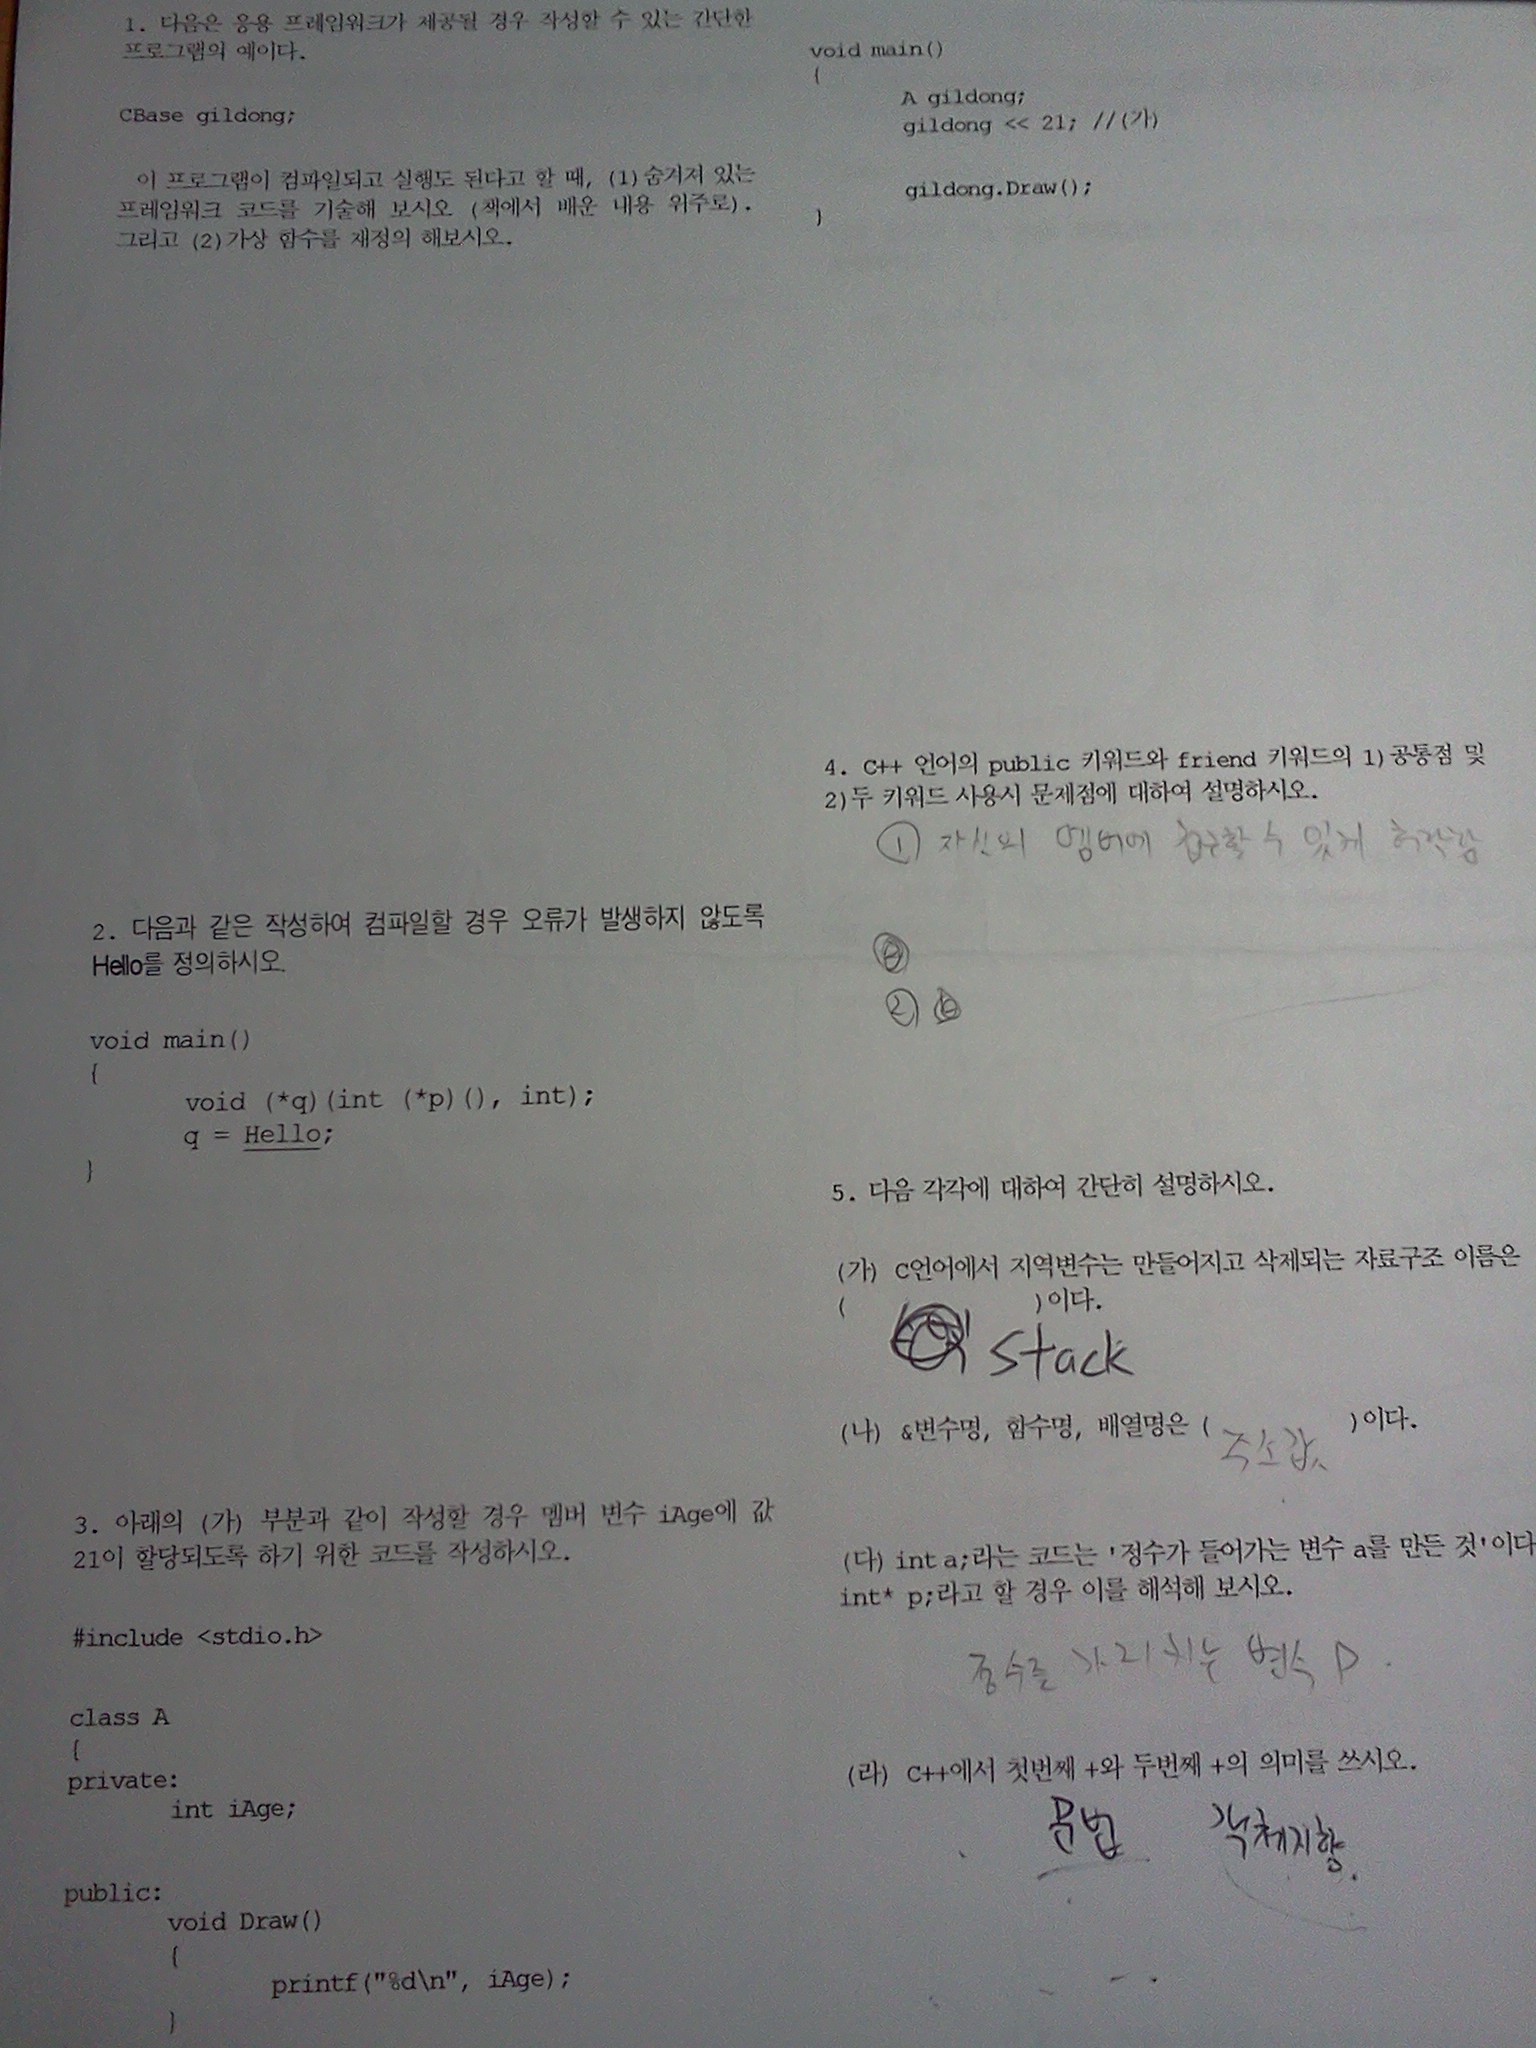 1. 다음은 응용 프레임워크가 제공될 경우 작성할 수 있는 간단한
프로그램의 예이다.
CBase gildong;
이 프로그램이 컴파일되고 실행도 된다고 할 때, (1)숨겨져 있는
프레임워크 코드를 기술해 보시오 (책에서 배운 내용 위주로).
그리고 (2)가상 함수를 재정의 해보시오.
2. 다음과 같은 작성하여 컴파일할 경우 오류가 발생하지 않도록
Hello를 정의하시오.
void main()
{
void (*q)(int (*p)(), int);
q = Hello;
}
3. 아래의 (가) 부분과 같이 작성할 경우 멤버 변수 iAge에 값
21이 할당되도록 하기 위한 코드를 작성하시오.
#include <stdio.h>
class A
{
private:
int iAge;
public:
void Draw()
{
printf("%d\n", iAge);
}
void main()
{
A gildong;
gildong << 21; //(가)
gildong.Draw();
}
4. C++ 언어의 public 키워드와 friend 키워드의 1)공통점 및
2)두 키워드 사용시 문제점에 대하여 설명하시오.
① 자신의 멤버에 접근할 수 있게 허락함
②
5. 다음 각각에 대하여 간단히 설명하시오.
(가) C언어에서 지역변수는 만들어지고 삭제되는 자료구조 이름은
( )이다.
stack
(나) &변수명, 함수명, 배열명은 ( 주소값 )이다.
(다) int a;라는 코드는 '정수가 들어가는 변수 a를 만든 것'이다
int* p;라고 할 경우 이를 해석해 보시오.
정수를 가리키는 변수 P.
(라) C++에서 첫번째 +와 두번째 +의 의미를 쓰시오.
문법 객체지향.